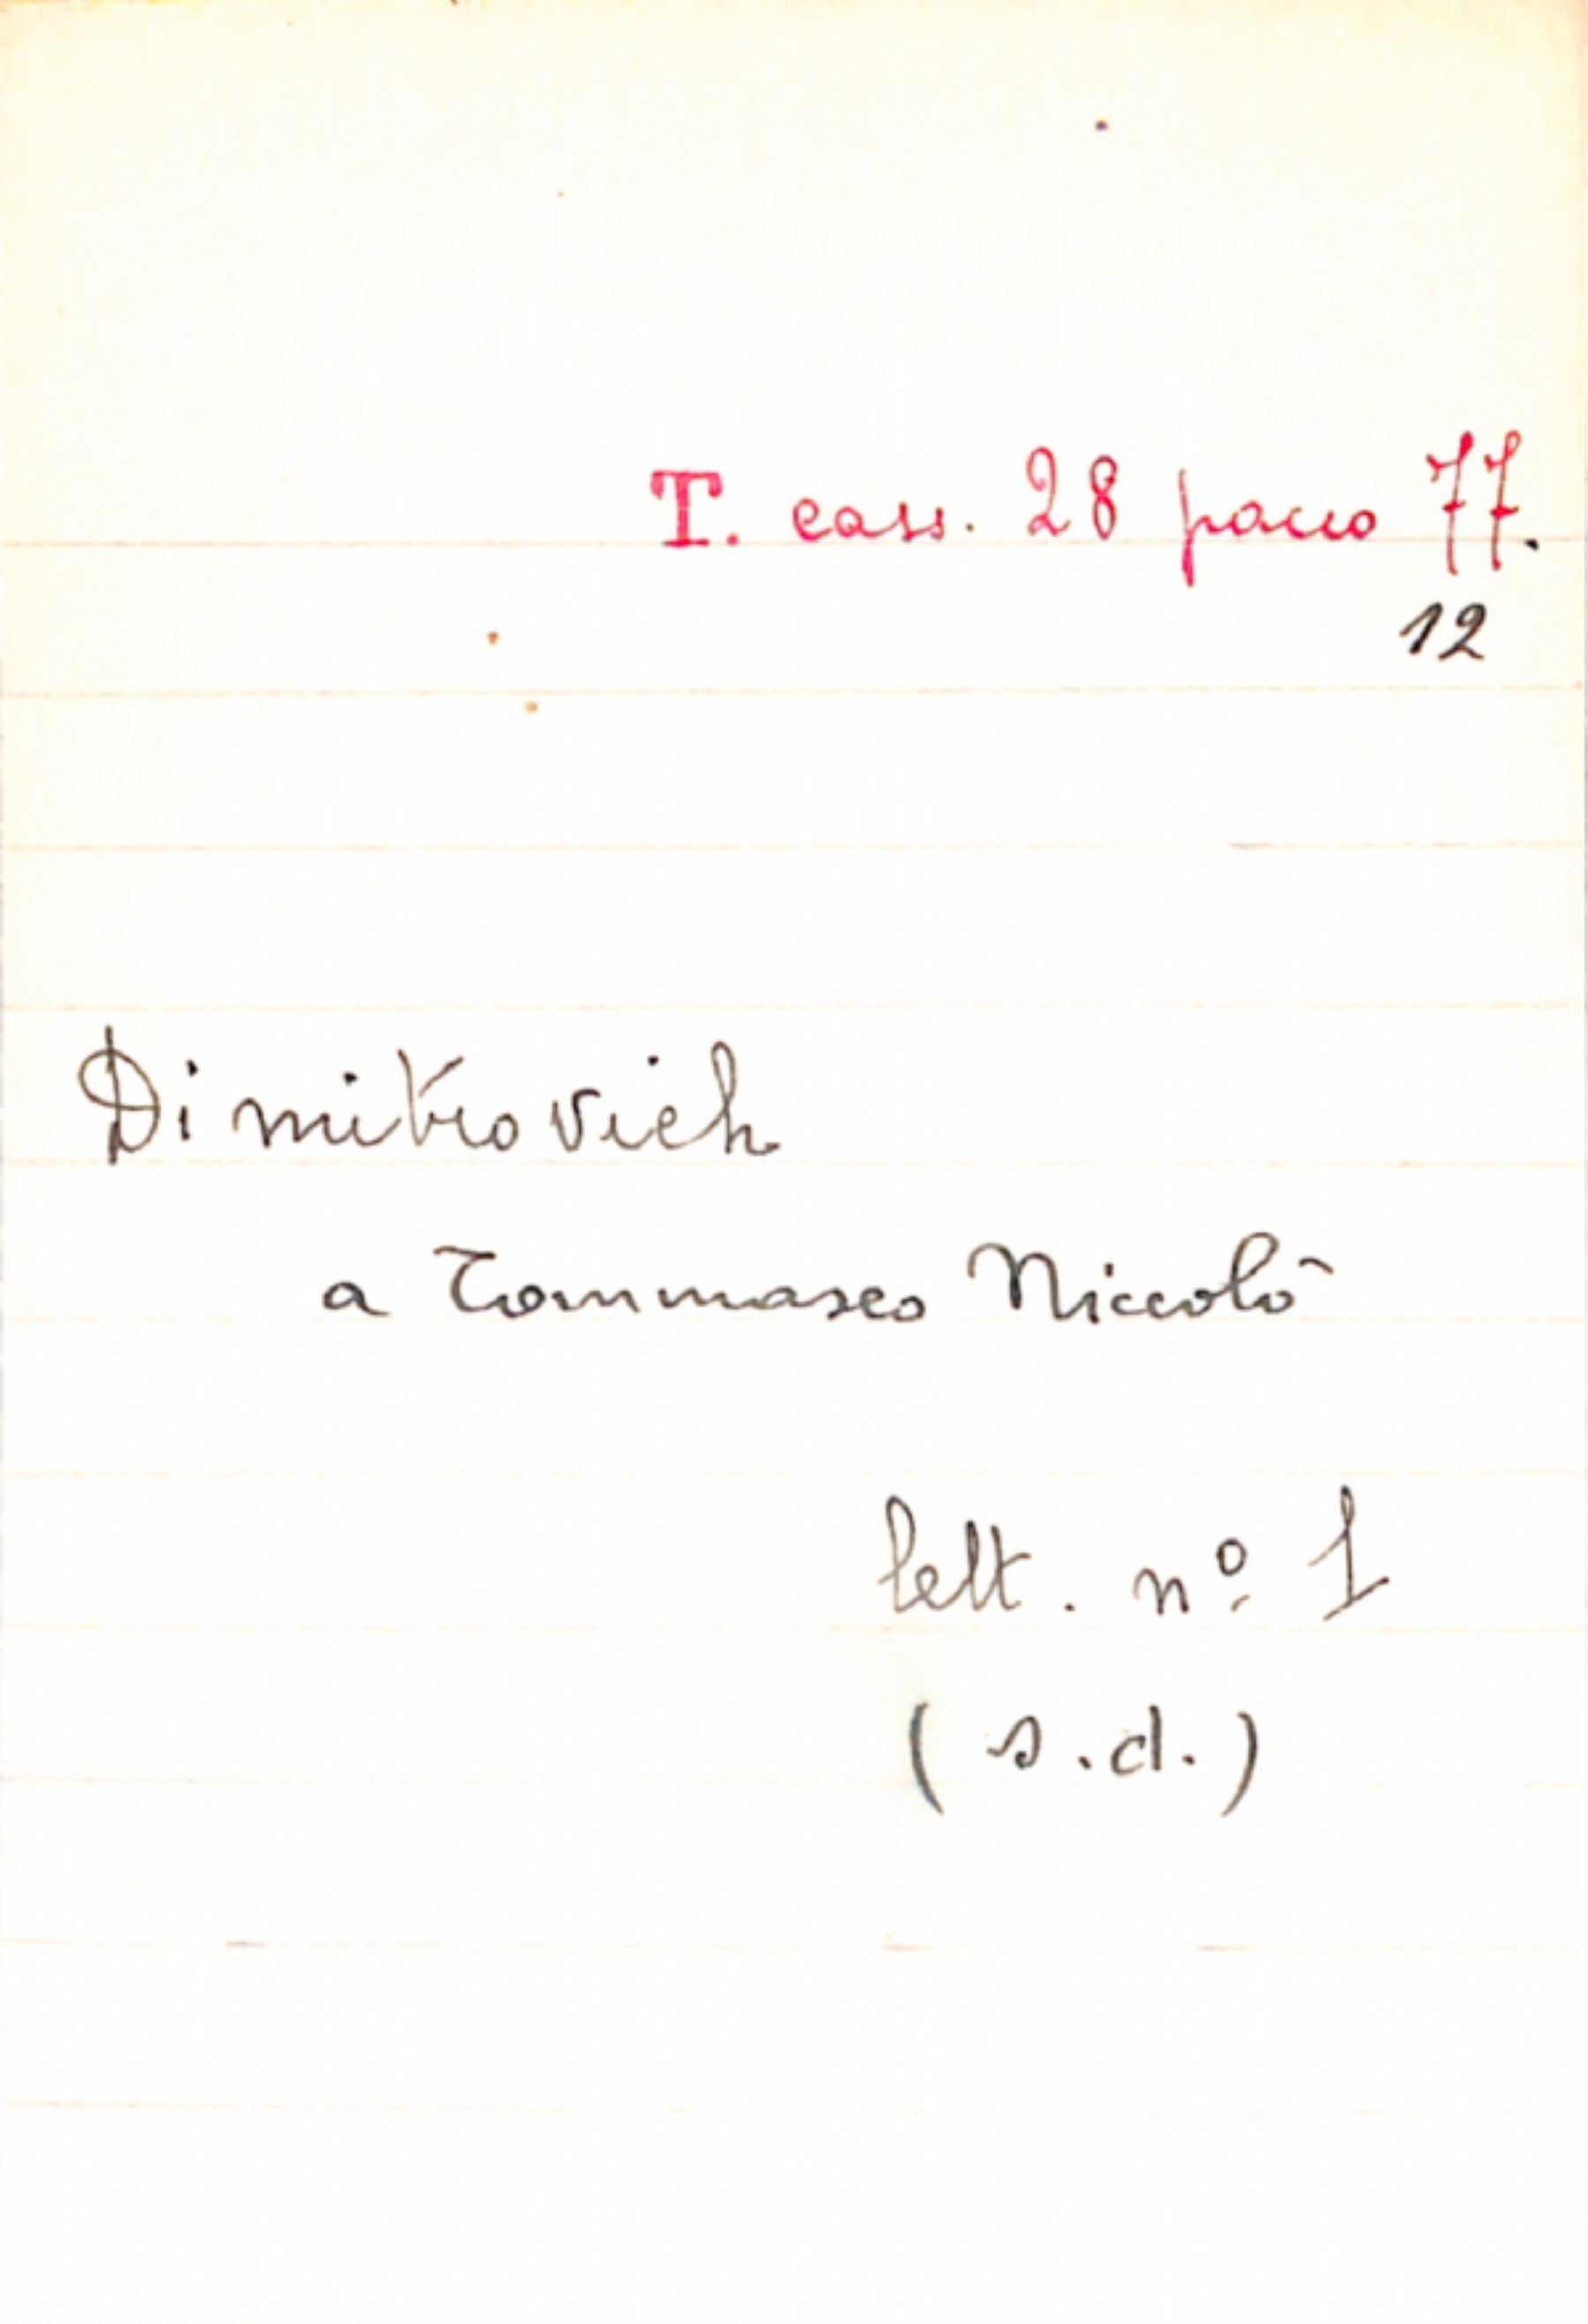 T. cass. 28 pacco 77.
12
Dimitrovich
a Tommaseo Niccolò
lett. nº 1
(s.d.)